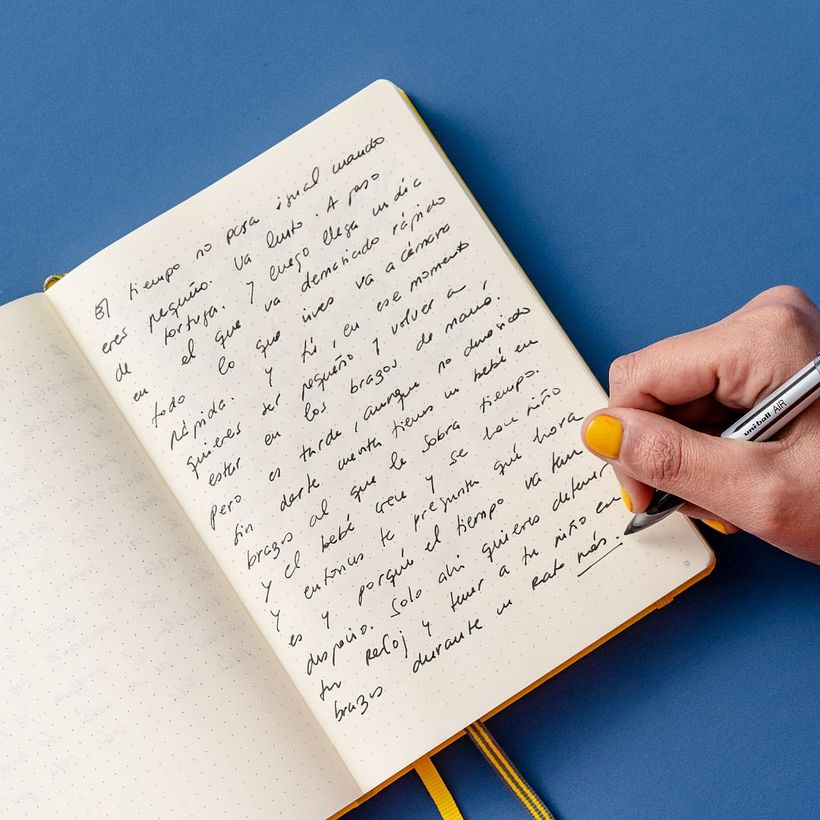 El tiempo no pasa igual cuando
eres pequeño. Va lento. A paso
de tortuga. Y luego llega un día
en el que va demasiado rápido
todo lo que vives va a cámara
rápida. Y tú, en ese momento
quieres ser pequeño y volver a
estar en los brazos de mamá.
Pero es tarde, aunque no demasiado
Sin darte cuenta tienes un bebé en
brazos al que le sobra tiempo.
y el bebé crece y se hace niño
y entonces te pregunta qué hora
es y porqué el tiempo va tan
despacio. Solo ahí quieres detener
tu reloj y tener a tu niño en
brazos durante un rato más.
uni-ball AIR